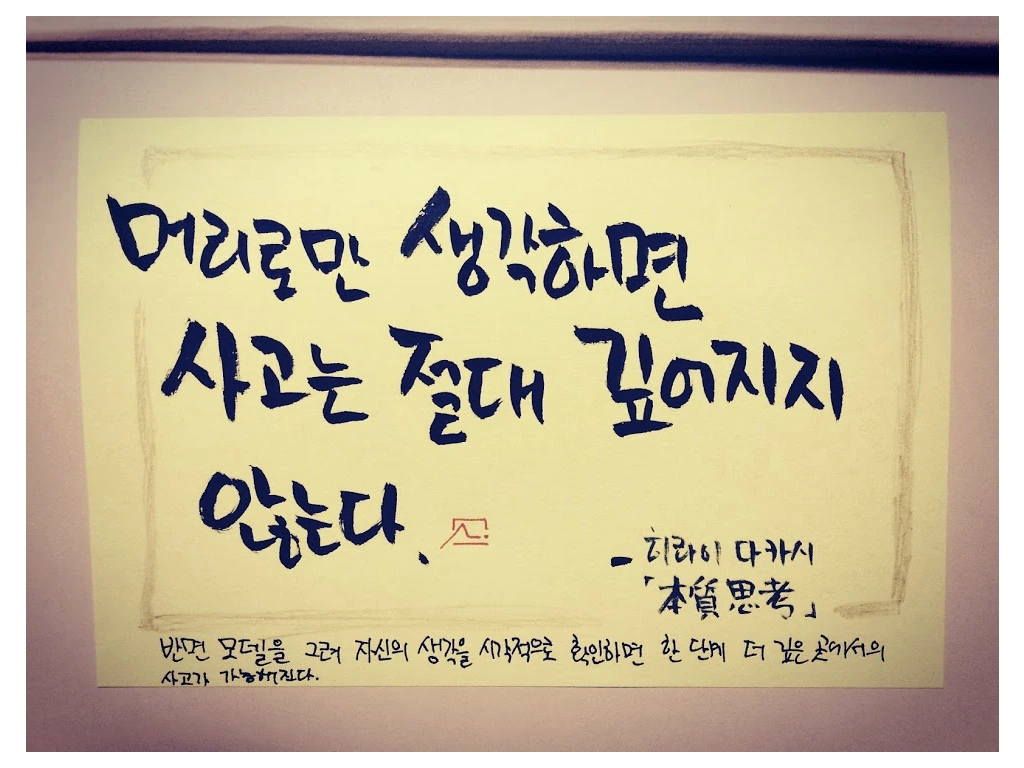 머리로만 생각하면
사고는 절대 깊어지지
않는다.
- 히라이 다카시
「本質思考」
반면 모델을 그려 자신의 생각을 시각적으로 확인하면 한 단계 더 깊은 곳에서의
사고가 가능해진다.